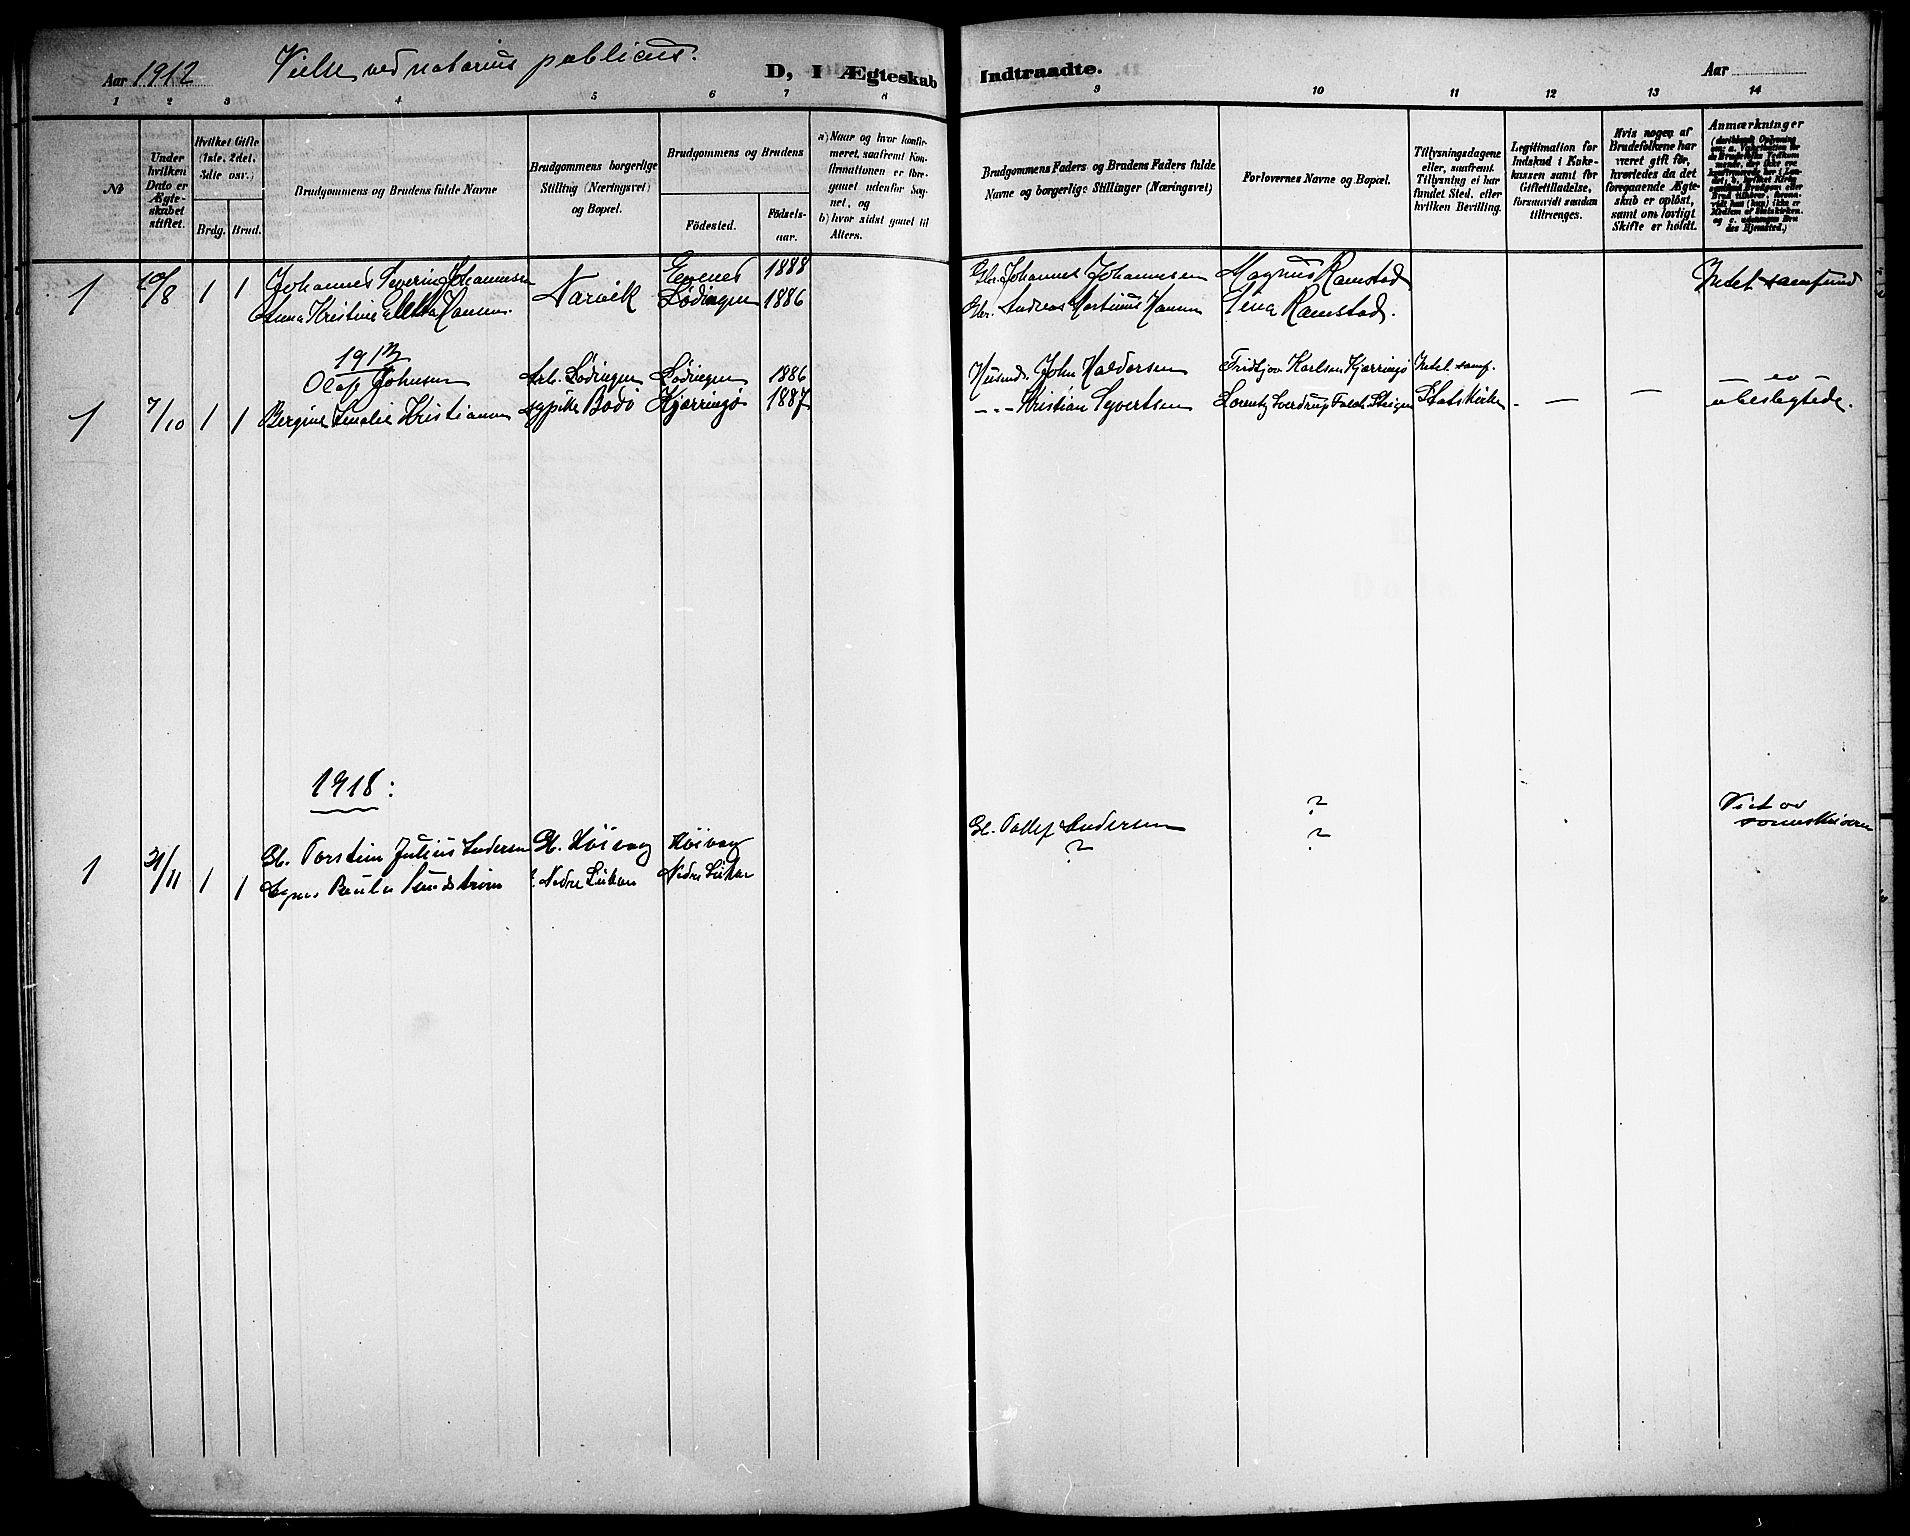 Aar 1912 Vielse ved notarius publicus. D, I Ægteskab Indtraadte. Aar
1 2 3 4 5 6 7 8 9 10 11 12 13 14
№
Under hvilken Dato er Ægteskabet stiftet.
Hvilket Gifte (1ste, 2det, 3die osv.)
Brdg. Brud.
Brudgommens og Brudens fulde Navne
Brudgommens borgerlige Stilling (Næringsvei) og Bopæl.
Brudgommens og Brudens
Födested. Födselsaar.
a) Naar og hvor konfirmeret, saafremt Konfirmationen er foregaaet udenfor Sognet, og
b) hvor sidst gaaet til Alters.
Brudgommens Faders og Brudens Faders fulde Navne og borgerlige Stillinger (Næringsvei)
Forlovernes Navne og Bopæl.
Tillysningsdagene eller, saafremt Tillysning ei har fundet Sted, efter hvilken Bevilling.
Legitimation for Indskud i Enkekassen samt for Giftetilladelse, forsaavidt saadan tiltrænges.
Hvis nogen af Brudefolkene har været gift för, hvorledes da det foregaaende Ægteskab er oplöst, samt om lovligt Skifte er holdt.
Anmærkninger
1 10/8 1 1 Johannes Severin Johannesen Narvik Evenes 1888 Gbr. Johannes Johannesen Magnus Ramstad Indet samfund
Anna Kristine Hansen. Lödingen 1886 Gbr. Andreas Martinus Hansen Lena Ramstad.
1913
Olaf Johnsen Arb. Lödingen Lödingen 1886 Husmd. John Haldorsen Fridtjov Karlsen Kjerringö Indet. samf. ev
1 7/10 1 1 Bergine Amalie Kristiansen Bodö Kjerringö 1887 - - - Kristian Syvertsen Lorentz Sverdrup Foldö Steigen Statskirke - — — ubeslegtede.
1918:
Gb. Torstein Julius Andersen Gb. Höivag Höivag Gb. Tollef Andersen ? Viet av sorenskriveren
1 1 1 Agnes Paula Sundström Nedre Lukan Nedre Lukan ? ?